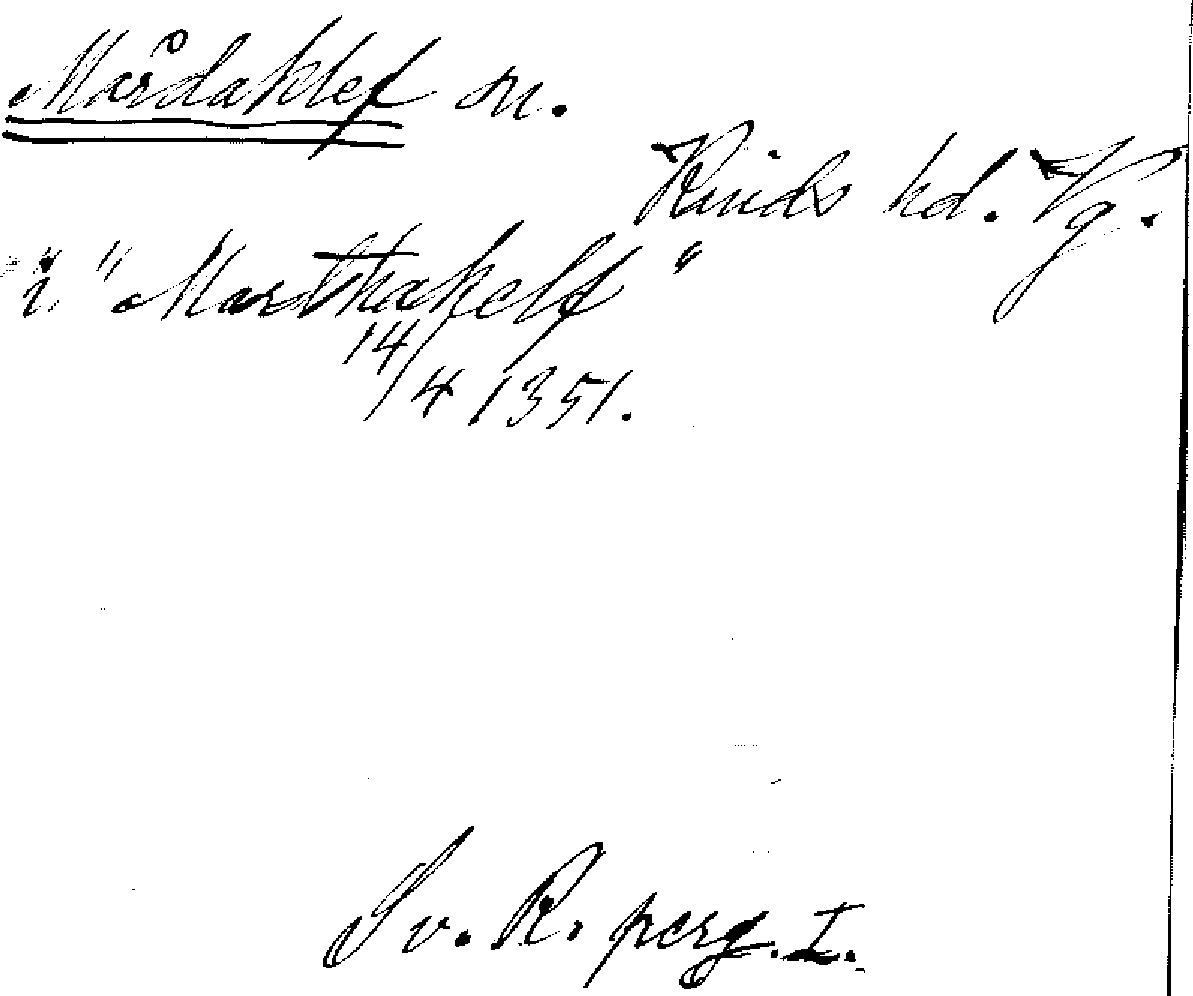 Mårdaklef sn.
Kinds hd. Vg.
i "Marthakelf"
14/4 1351.
Sv. R. perg. I.